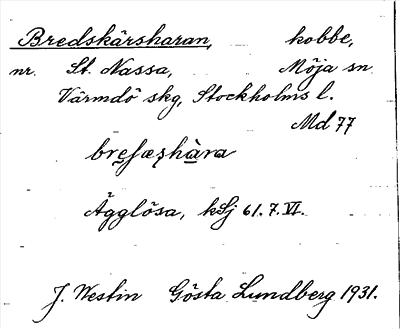 Bredskärsharan, kobbe,
nr. St. Nassa, Möja sn
Värmdö skg, Stockholms l.
Md 77
Ägglösa, kSj 61. 7. VI.
J. Westin Gösta Lundberg 1931.